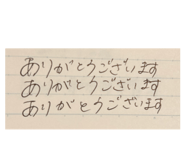 ありがとうございます
ありがとうございます
ありがとうございます